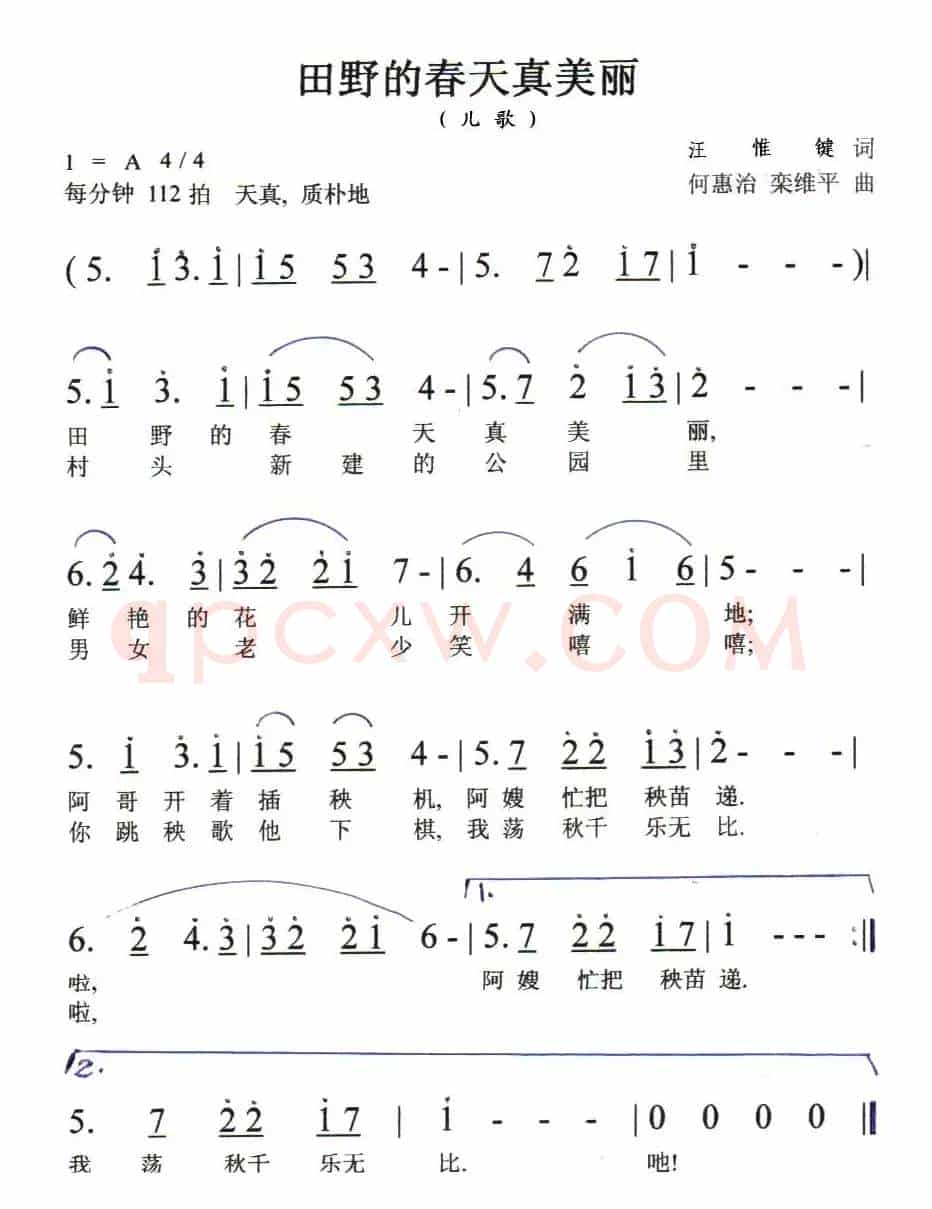 田野的春天真美丽
(儿歌)
1 = A 4/4
汪惟键 词
每分钟 112 拍 天真, 质朴地
何惠治 栾维平 曲
(5. i 3. i | i 5 5 3 4 - | 5. 7 2 i 7 | i - - -) |
5. i 3. i | i 5 5 3 4 - | 5. 7 2 i 3 | 2 - - - |
田野的春天真美丽,
村头新建的公园里
6. 2 4. 3 | 3 2 2 i 7 - | 6. 4 6 i 6 | 5 - - - |
鲜艳的花儿开满地;
男女老少笑嘻嘻;
qpcxw.COM
5. i 3. i | i 5 5 3 4 - | 5. 7 2 2 i 3 | 2 - - - |
阿哥开着插秧机, 阿嫂忙把秧苗递.
你跳秧歌他下棋, 我荡秋千乐无比.
1.
6. 2 4. 3 | 3 2 2 i 6 - | 5. 7 2 2 i 7 | i - - - :|
啦, 阿嫂忙把秧苗递.
啦,
2.
5. 7 2 2 i 7 | i - - - | 0 0 0 0 |
我荡秋千乐无比. 吔!